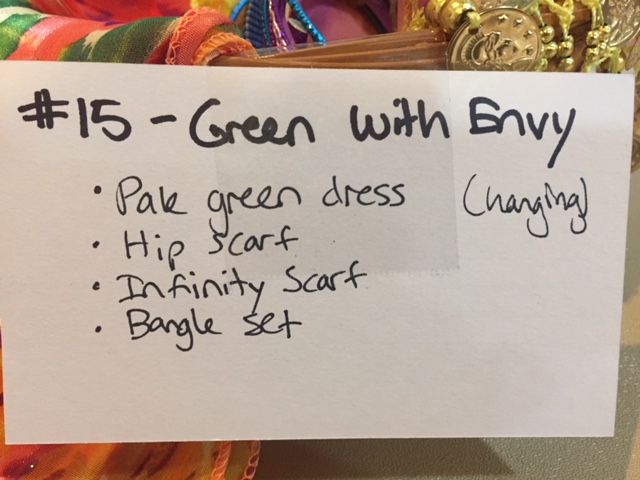 #15 - Green with Envy
• Pale green dress (hanging)
• Hip scarf
• Infinity Scarf
• Bangle set